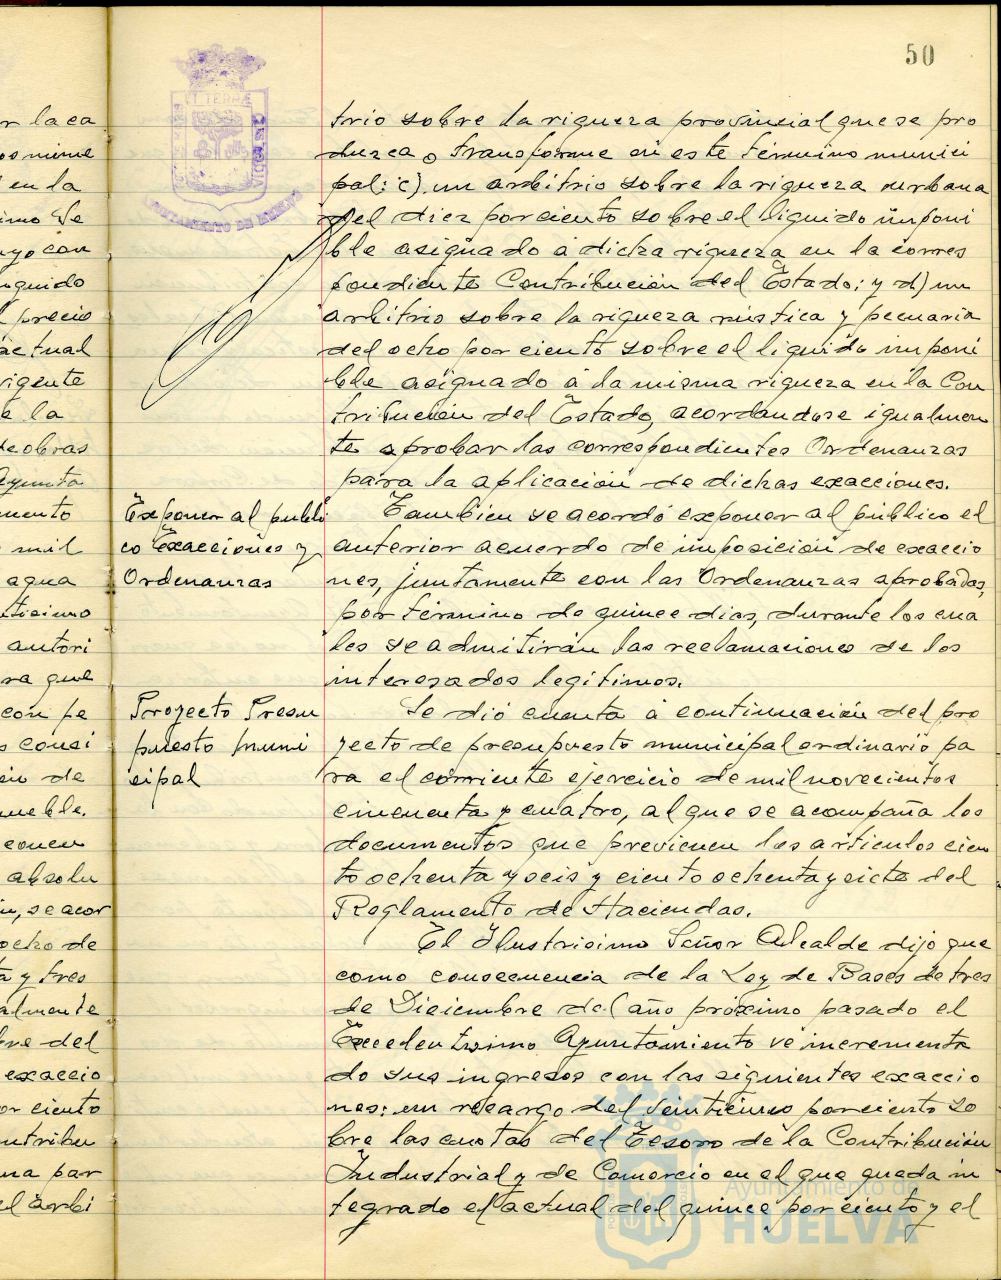 50
trio sobre la riqueza provincial que se pro
duzca o transforme en este término munici
pal: c). un arbitrio sobre la riqueza urbana
del diez por ciento sobre el líquido imponi
ble asignado á dicha riqueza en la corres
pondiente Contribución del Estado: y d) un
arbitrio sobre la riqueza rústica y pecuaria
del ocho por ciento sobre el líquido imponi
ble asignado á la misma riqueza en la Con
tribución del Estado, acordandose igualmen
te aprobar las correspondientes Ordenanzas
para la aplicación de dichas exacciones.
Exponer al públi
co Exacciones y
Ordenanzas
Tambien se acordó exponer al público el
anterior acuerdo de imposición de exaccio
nes, juntamente con las Ordenanzas aprobadas,
por término de quince dias, durante los cua
les se admitirán las reclamaciones de los
interesados legítimos.
Proyecto Presu
puesto muni
cipal
Se dió cuenta á continuación del pro
yecto de presupuesto municipal ordinario pa
ra el corriente ejercicio de mil novecientos
cincuenta y cuatro, al que se acompaña los
documentos que previenen los articulos cien
to ochenta y seis y ciento ochenta y siete del
Reglamento de Haciendas.
El Ilustrisimo Señor Alcalde dijo que
como consecuencia de la Ley de Bases de tres
de Diciembre del año próximo pasado el
Excelentisimo Ayuntamiento ve incrementa
do sus ingresos con las siguientes exaccio
nes: un recargo del veinticinco por ciento so
bre las cuotas del Tesoro de la Contribución
Industrial y de Comercio en el que queda in
tegrado el actual del quince por ciento y el
r la ca
en la
imo Se
yo con
precio
actual
vigente
e la
de obras
Ayunta
mento
mil
agua
autori
ra que
con pe
s consi
en de
mueble.
concu
absolu
n, se acor
ocho de
a y tres
almente
bre del
exaccio
or ciento
ontribu
na par
el arbi
AYUNTAMIENTO DE HUELVA
Ayuntamiento de
HUELVA